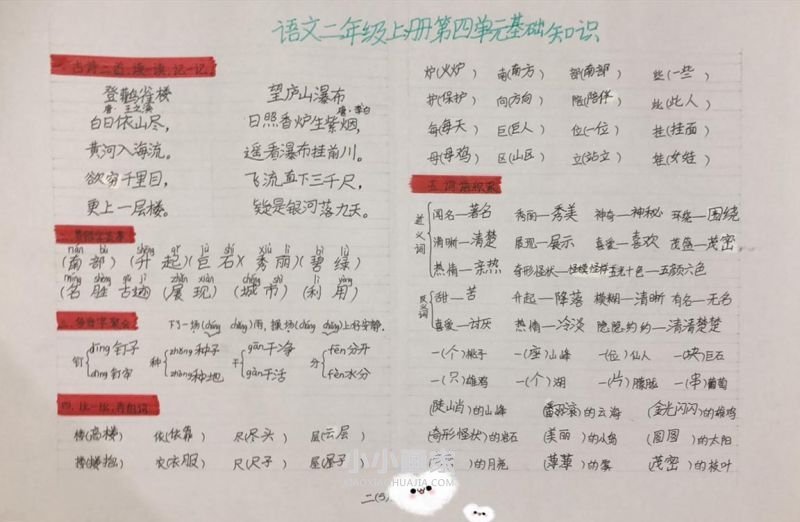 语文二年级上册第四单元基础知识
一.古诗二首,读一读,记一记
登鹳雀楼
唐·王之涣
白日依山尽,
黄河入海流。
欲穷千里目,
更上一层楼。
望庐山瀑布
唐·李白
日照香炉生紫烟,
遥看瀑布挂前川。
飞流直下三千尺,
疑是银河落九天。
nán bù shēng qǐ jù shí xiù lì bì lǜ
(南部)(升起)(巨石)(秀丽)(碧绿)
míng shèng gǔ jì zhǎn xiàn chéng shì lì yòng
(名胜古迹)(展现)(城市)(利用)
三.多音字聚会
下了一场(cháng chǎng)雨,操场(cháng chǎng)上好安静.
钉 dīng钉子 dìng钉牢
种 zhǒng种子 zhòng种地
干 gān干净 gàn干活
分 fēn分开 fèn水分
四.比一比,再组词
楼(高楼) 依(依靠) 尽(尽头) 层(云层)
搂(搂抱) 衣(衣服) 尺(尺子) 屋(屋子)
炉(火炉) 南(南方) 部(南部) 些(一些)
护(保护) 向(方向) 陪(陪伴) 此(此人)
每(每天) 巨(巨人) 位(一位) 挂(挂面)
母(母鸡) 区(山区) 立(站立) 娃(女娃)
五.词语积累
近义词
闻名—著名 秀丽—秀美 神奇—神秘 环绕—围绕
清晰—清楚 展现—展示 喜爱—喜欢 茂盛—茂密
热情—亲热 奇形怪状—怪模怪样 五光十色—五颜六色
反义词
甜—苦 升起—降落 模糊—清晰 有名—无名
喜爱—讨厌 热情—冷淡 隐隐约约—清清楚楚
一(个)桃子 一(座)山峰 一(位)仙人 一(块)巨石
一(只)雄鸡 一(个)湖 一(片)朦胧 一(串)葡萄
(陡峭)的山峰 (翻滚)的云海 (金光闪闪)的雄鸡
(奇形怪状)的岩石 (美丽)的小岛 (圆圆)的太阳
的月亮 的雾 (茂密)的枝叶
二(5)
小小画家
XIAOXIAOHUAJIA.COM